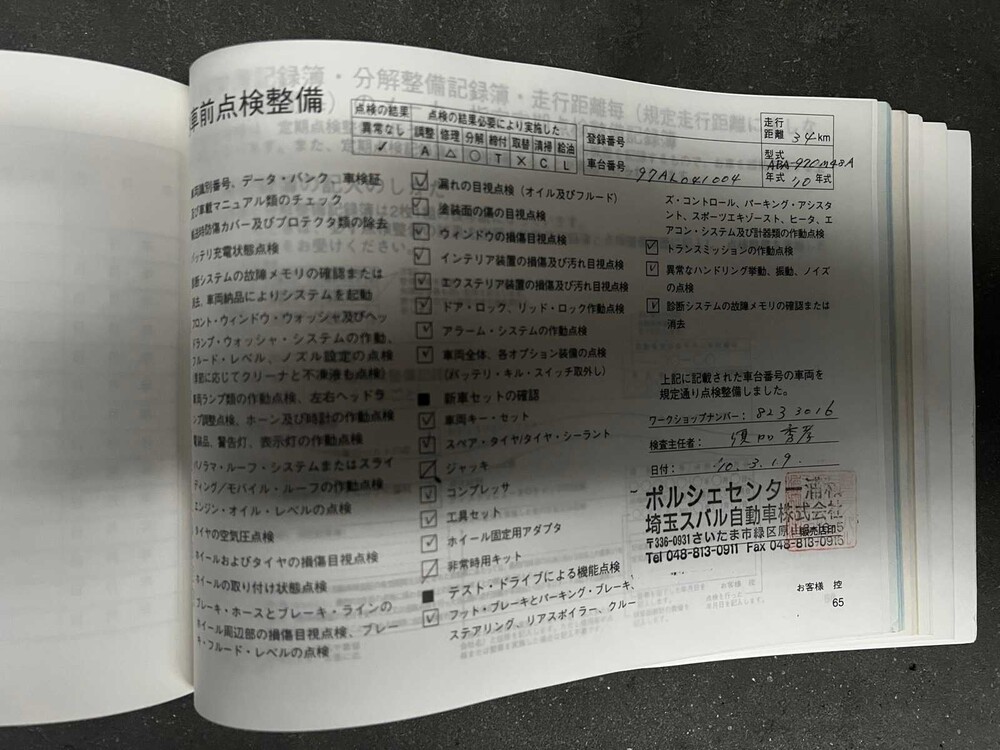 車前点検整備
点検の結果 点検の結果必要により実施した
異常なし 調整 修理 分解 締付 取替 清掃 給油
✓ A △ ○ T × C L
登録番号
走行距離 34 km
車台番号 97AL041004
型式
年式 '10 年式
識別番号、データ・バンク、車検証
及び車載マニュアル類のチェック
送時防傷カバー及びプロテクタ類の除去
バッテリ充電状態点検
診断システムの故障メモリの確認または
消去、車両納品によりシステムを起動
フロント・ウィンドウ・ウォッシャ及びヘッ
ドランプ・ウォッシャ・システムの作動、
フルード・レベル、ノズル設定の点検
(季節に応じてクリーナと不凍液も点検)
車両ランプ類の作動点検、左右ヘッドラ
ンプ調整点検、ホーン及び時計の作動点検
電装品、警告灯、表示灯の作動点検
パノラマ・ルーフ・システムまたはスライ
ディング/モバイル・ルーフの作動点検
エンジン・オイル・レベルの点検
タイヤの空気圧点検
ホイールおよびタイヤの損傷目視点検
ホイールの取り付け状態点検
ブレーキ・ホースとブレーキ・ラインの
ホイール周辺部の損傷目視点検、ブレー
キ・フルード・レベルの点検
漏れの目視点検(オイル及びフルード)
塗装面の傷の目視点検
ウィンドウの損傷目視点検
インテリア装置の損傷及び汚れ目視点検
エクステリア装置の損傷及び汚れ目視点検
ドア・ロック、リッド・ロック作動点検
アラーム・システムの作動点検
車両全体、各オプション装備の点検
(バッテリ・キル・スイッチ取外し)
■ 新車セットの確認
車両キー・セット
スペア・タイヤ/タイヤ・シーラント
ジャッキ
コンプレッサ
工具セット
ホイール固定用アダプタ
非常時用キット
■ テスト・ドライブによる機能点検
フット・ブレーキとパーキング・ブレーキ、
ステアリング、リアスポイラー、クルー
ズ・コントロール、パーキング・アシスタ
ント、スポーツエキゾースト、ヒータ、エ
アコン・システム及び計器類の作動点検
トランスミッションの作動点検
異常なハンドリング挙動、振動、ノイズ
の点検
診断システムの故障メモリの確認または
消去
上記に記載された車台番号の車両を
規定通り点検整備しました。
ワークショップナンバー: 8233016
検査主任者:
日付: '10.3.19.
ポルシェセンター浦和
埼玉スバル自動車株式会社
〒336-0931さいたま市緑区原山
販売店印
Tel 048-813-0911 Fax 048-813-0915
お客様 控
65